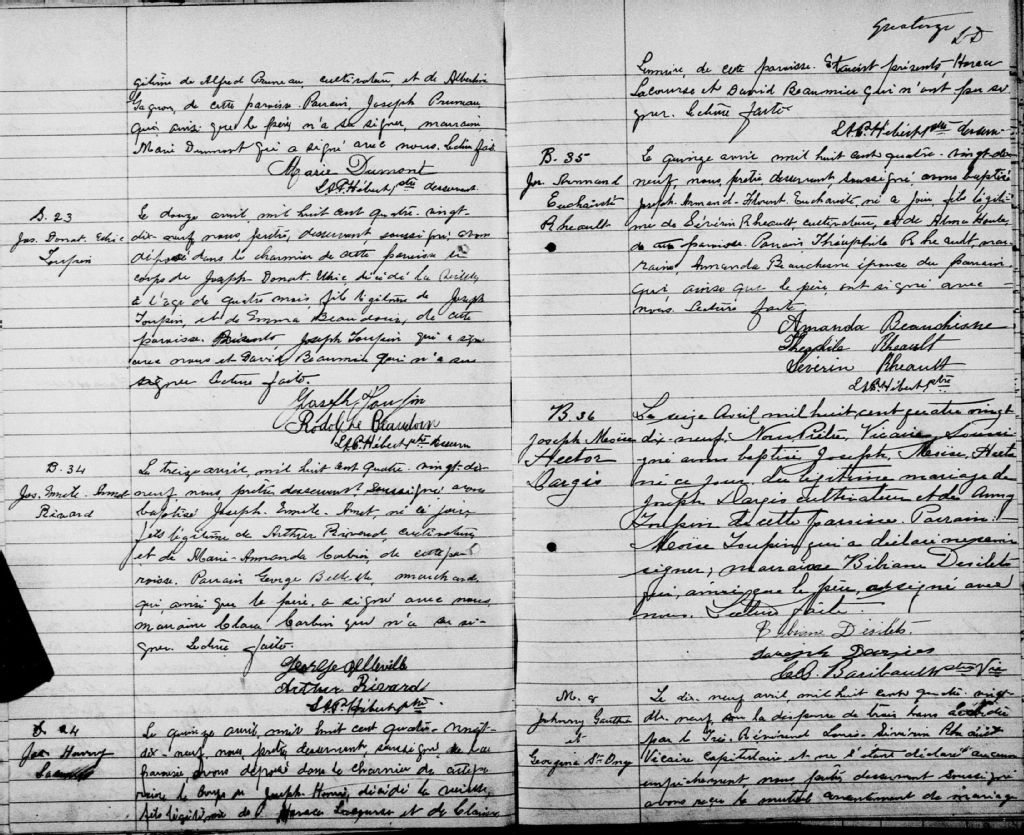 gitime de Alfred Pruneau, cultivateur et de Albertine
Gagnon, de cette paroisse. Parrain, Joseph Pruneau
qui ainsi que le père n'a su signer, marraine
Marie Dumont qui a signé avec nous. Lecture faite
Marie Dumont
L.A.P. Hébert, ptre desservant
S. 23
Jos. Donat Ulric
Toupin
Le douze avril, mil huit cent quatre-vingt-
dix-neuf, nous, prêtre, desservant soussigné avons
déposé dans le charnier de cette paroisse le
corps de Joseph Donat Ulric décédé la veille
à l'âge de quatre mois, fils légitime de Joseph
Toupin, et de Emma Beaudoin, de cette
paroisse. Présents, Joseph Toupin qui a signé
avec nous et David Beaumier qui n'a su
signer lecture faite.
Joseph Toupin
Rodolphe Beaudoin
L.A.P. Hébert ptre desserv
B. 34
Jos. Emile Amet
Rivard
Le treize avril, mil huit cent quatre-vingt-dix-
neuf, nous, prêtre desservant, soussigné avons
baptisé Joseph-Emile-Amet, né ce jour,
fils légitime de Arthur Rivard, cultivateur
et de Marie-Amanda Corbin, de cette pa-
roisse. Parrain George Belleville, marchand
qui, ainsi que le père, a signé avec nous,
marraine Clara Corbin qui n'a su si-
gner. Lecture faite.
George Belleville
Arthur Rivard
L.A.P. Hébert ptre
S. 24
Jos. Henry
Le quinze avril, mil huit cent quatre-vingt-
dix-neuf, nous, prêtre desservant, soussigné de la
paroisse avons déposé dans le charnier du cime-
tière le corps de Joseph Henri, décédé la veille,
fils légitime de Horace Lacourse et de Claire
L D
Lemire de cette paroisse. Etaient présents, Horace
Lacourse et David Beaumier qui n'ont pu si-
gner. Lecture faite
L.A.P. Hébert ptre desserv
B. 35
Jos. Armand
Euchariste
Rheault
Le quinze avril mil huit cent quatre-vingt-dix-
neuf, nous, prêtre desservant, soussigné, avons baptisé
Joseph-Armand- Euchariste né ce jour fils légiti-
me de Sévérin Rheault, cultivateur, et de Alma Houle,
de cette paroisse. Parrain Théophile Rheault mar-
raine, Amanda Beauchesne épouse du parrain
qui ainsi que le père, ont signé avec
nous. Lecture faite
Amanda Beauchesne
Théophile Rheault
Sévérin Rheault
L.A.P. Hébert ptre
B. 36
Joseph Moïse
Hector
Dargis
Le seize Avril mil huit cent quatre vingt
dix-neuf, Nous Prêtre, Vicaire, soussi-
gné avons baptisé Joseph, Moïse, Hector
né ce jour, du légitime mariage de
Joseph Dargis cultivateur et de Anny
Toupin de cette paroisse. Parrain
Moïse Toupin qui a déclaré ne savoir
signer; marraine Bibiane Désilets
qui, ainsi que le père, ont signé avec
nous. Lecture faite.
Bibiane Désilets
Joseph Dargis
Baribeault ptre Vic
M. 8
Johnny Gauthier
et
Georgina St-Onge
Le dix-neuf avril, mil huit cent quatre-vingt-
dix-neuf vu la dispense de trois bans accordée
par le Très Révérend Louis-Sévérin Rheault
Vicaire Capitulaire et ne s'étant déclaré aucun
empêchement, nous, prêtre desservant soussigné
avons reçu le mutuel consentement de mariage